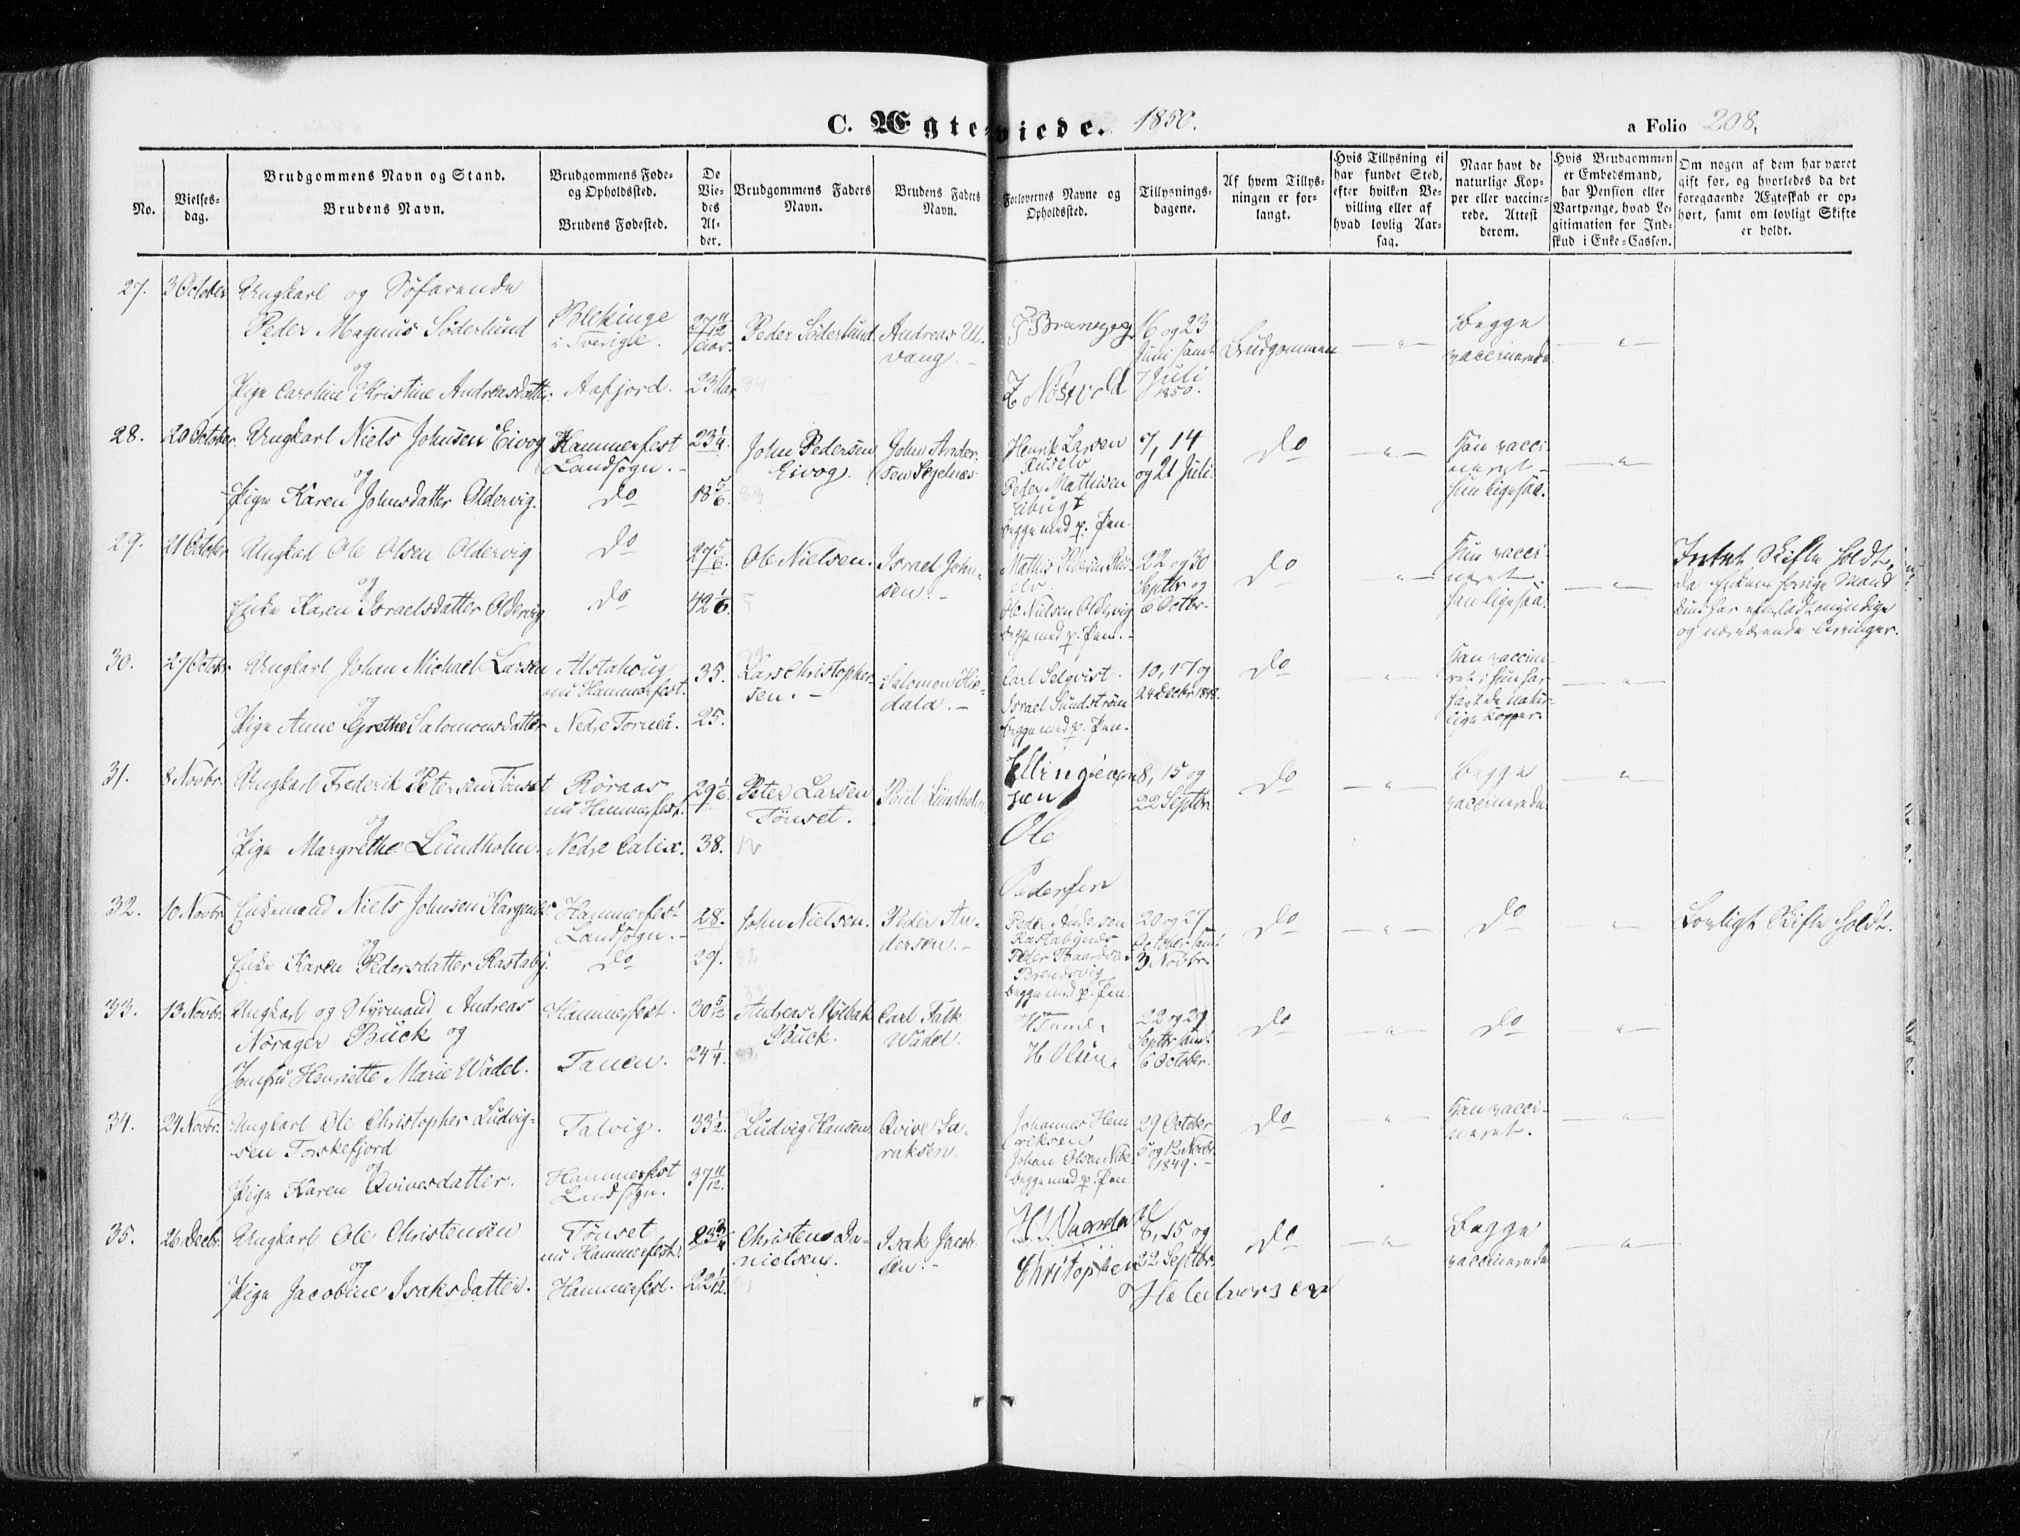 C. Ægteviede. 1850.
a Folio 208.
No.
Vielses-
dag.
Brudgommens Navn og Stand.
Brudens Navn.
Brudgommens Føde-
og Opholdssted.
Brudens Fødested.
De
Vie-
des
Al-
der.
Brudgommens Faders
Navn.
Brudens Faders
Navn.
Forlovernes Navne og
Opholdssted.
Tillysnings-
dagene.
Af hvem Tillys-
ningen er for-
langt.
Hvis Tillysning ei
har fundet Sted,
efter hvilken Be-
villing eller af
hvad lovlig Aar-
sag.
Naar havt de
naturlige Kop-
per eller vaccine-
rede. Attest
derom.
Hvis Brudgommen
er Embedsmand,
har Pension eller
Vartpenge, hvad Le-
gitimation for Ind-
skud i Enke-Cassen.
Om nogen af dem har været
gift før, og hvorledes da det
foregaaende Ægteskab er op-
hørt, samt om lovligt Skifte
er holdt.
27. 3 October Ungkarl og Söfarende
Peder Magnus Söderlund
og
Pige Caroline Kristine Andreasdatter.
Blekinge
i Sverigle.
Aafjord.
27 11/12
23 Aar
Peder Söderlund
Andreas Ul-
vang.
16 og 23
Juni samt
7 Juli
1850.
Brudgommen
Begge
vaccinerede
28. 20 October. Ungkarl Niels Johnsen Eivog
og
Pige Karen Johnsdatter Oldervig.
Hammerfest
Landsogn.
do
23 1/4.
18 5/6.
John Pedersen
Eivog.
John Ander-
sen
Henrik Larsen
Peter Mathisen
begge med p. Pen.
7, 14
og 21 Juli.
do
Han vacci-
neret
hun ligesaa.
29. 21 October Ungkarl Ole Olsen Oldervig
og
Enke Karen Israelsdatter Oldervig
do
do
27 5/6.
42 1/6.
Ole Nielsen.
Israel John-
sen.
Mathis Pedersen
Nielsen Oldervig
begge med p. Pen.
22 og 30
Septbr og
6 Octbr.
do
Hun vacci-
neret
han ligesaa.
Intet Skifte holdt,
da Enkens forrige Mand
kun har efterladt myndige
og nærværende Arvinger.
30. 27 Octobr. Ungkarl Johan Michael Larsen
og
Pige Anne Grethe Salomonsdatter
Alstahoug
nu Hammerfest.
Nedre Torneå.
35.
25.
Lars Christopher-
sen.
Salomon Hie-
dala.
Carl Selqvist.
Israel Sundström
begge med p. Pen.
10, 17 og
24 Decbr
do
Han vaccine-
ret; hun har
havt de natur-
lige Kopper.
31. 8 Novbr. Ungkarl Frederik Petersen Tönset
og
Pige Margrethe Lundholm.
Röraas
nu Hammerfest.
Nedre Calix.
29 1/6.
38.
Peter Larsen
Tönset.
Lundholm
Ole
Pedersen
8, 15 og
22 Septbr.
do
Begge
vaccinerede
32. 10 Novbr. Enkemand Niels Johnsen
og
Enke Karen Pedersdatter Rastaby.
Hammerfest
Landsogn.
do
28.
29.
John Nielsen.
Peder An-
dersen.
Peder Andersen
begge med p. Pen.
20 og 27
October samt
3 Novbr.
do
do
Lovligt Skifte holdt.
33. 13 Novbr. Ungkarl og Styrmand Andreas
Norager Buck og
Jomfru Henriette Marie Wadel.
Hammerfest.
Tanen.
30 5/12
24 1/4.
Andreas Mölbak
Buck.
Carl Falk
Wadel.
H. Olsen.
22 og 29
Septbr samt
6 October.
do
do
34. 24 Novbr. Ungkarl Ole Christopher Ludvig-
sen Torskefjord
og
Pige Karen Qvivesdatter.
Talvig.
Hammerfest
Landsogn.
33 1/2.
37 11/12.
Ludvig Hansen
Qvive Sa-
raksen.
Johannes Hen-
riksen
Johan Olsen
begge med p. Pen.
29 October
5 og 12 Novbr.
1849.
do
Han vacci-
neret.
35. 26 Decbr. Ungkarl Ole Christensen
og
Pige Jacobine Isaksdatter.
Tönset
nu Hammerfest.
Hammerfest.
23 3/4
22 1/12.
Christen Da-
nielsen.
Isak Jacob-
sen.
Halvorsen
8, 15 og
22 Septbr.
do
Begge
vaccinerede